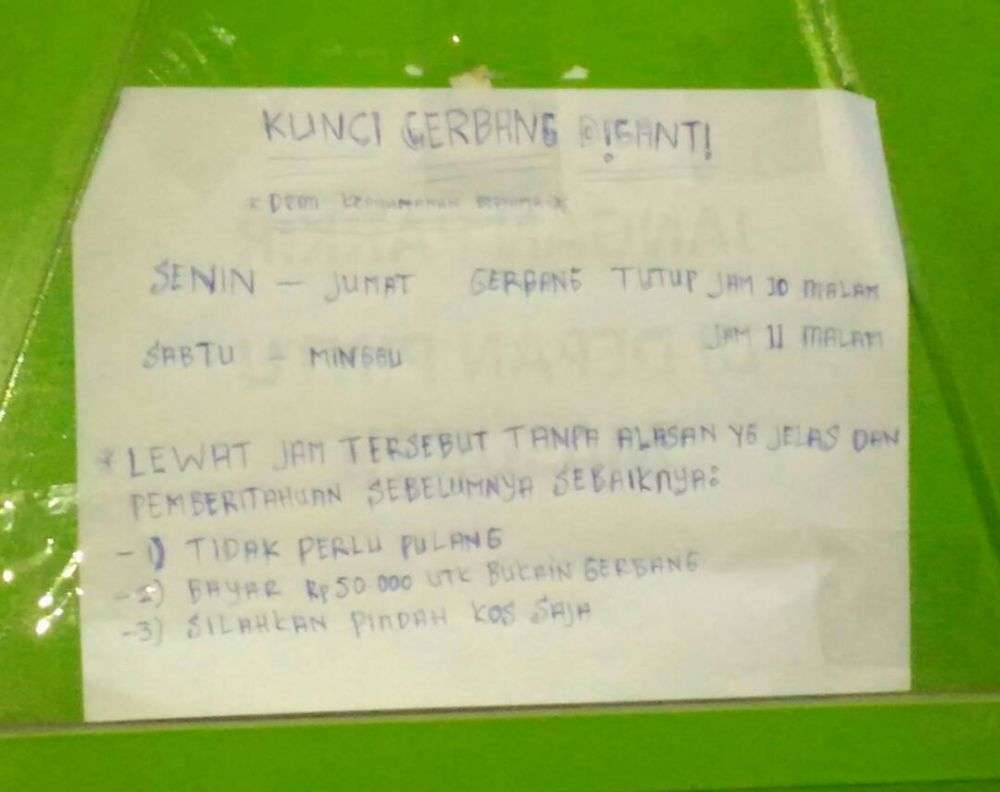 KUNCI GERBANG DIGANTI
* DEMI KENYAMANAN BERSAMA *
SENIN - JUMAT GERBANG TUTUP JAM 10 MALAM
SABTU - MINGGU JAM 11 MALAM
* LEWAT JAM TERSEBUT TANPA ALASAN YG JELAS DAN
PEMBERITAHUAN SEBELUMNYA SEBAIKNYA:
- 1) TIDAK PERLU PULANG
- 2) BAYAR Rp 50.000 UTK BUKAIN GERBANG
- 3) SILAHKAN PINDAH KOS SAJA